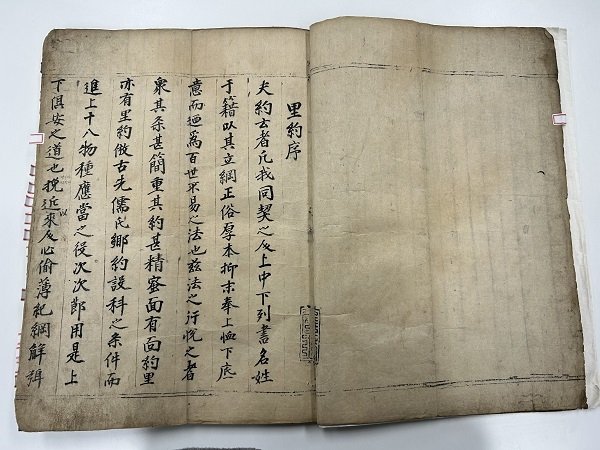 里約序
夫約云者凡我同契之民上中下列書名姓
于籍以其立綱正俗厚本抑末奉上恤下底
意而廼爲百世不易之法也玆法之行悅之者
衆其条甚簡重其約甚精密面有面約里
亦有里約倣古先儒氏鄕約設科之条件而
進上十八物種應當之役次次節用是上
下俱安之道也挽近以來民心偷薄紀綱解弛